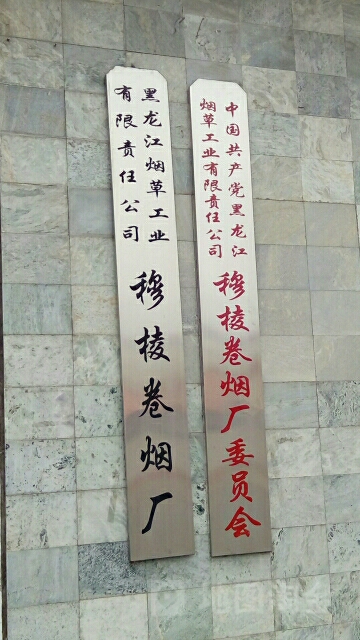 黑龙江烟草工业
有限责任公司
穆棱卷烟厂
中国共产党黑龙江
烟草工业有限责任公司
穆棱卷烟厂委员会